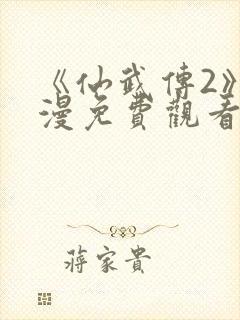 《仙武傳2》
漫免費觀看
蔣家貴